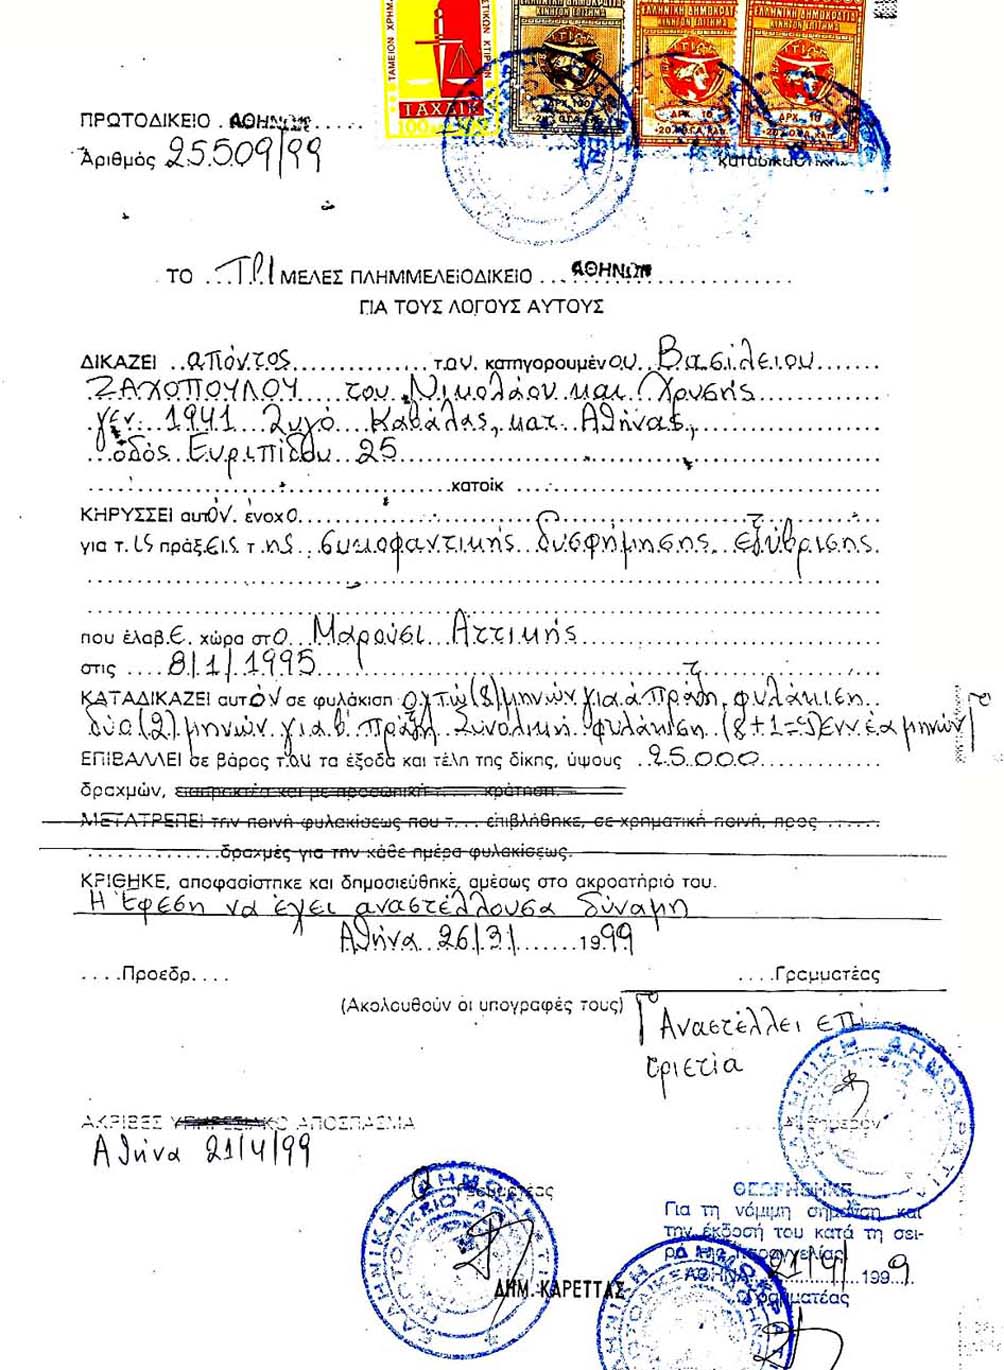 ΤΑΜΕΙΟΝ ΧΡΗΜ
ΤΙΚΩΝ ΚΤΙΡΙΩΝ
ΤΑΧΔΙΚ
100
ΕΛΛΗΝΙΚΗ ΔΗΜΟΚΡΑΤΙΑ
ΚΙΝΗΤΟΝ ΕΠΙΣΗΜΑ
ΕΛΛΗΝΙΚΗ ΔΗΜΟΚΡΑΤΙΑ
ΚΙΝΗΤΟΝ ΕΠΙΣΗΜΑ
ΔΡΧ. 10
ΔΡΧ. 10
ΠΡΩΤΟΔΙΚΕΙΟ . ΑΘΗΝΩΝ
Αριθμός 25509/99
ΤΟ ...ΤΡΙ ΜΕΛΕΣ ΠΛΗΜΜΕΛΕΙΟΔΙΚΕΙΟ ... ΑΘΗΝΩΝ
ΓΙΑ ΤΟΥΣ ΛΟΓΟΥΣ ΑΥΤΟΥΣ
ΔΙΚΑΖΕΙ ..απόντος.......τ.ου. κατηγορουμένου. Βασίλειου
ΖΑΧΟΠΟΥΛΟΥ του Νικολάου και Χρυσής
γεν. 1941 Ζυγό Καβάλας, κατ. Αθήνας,
οδός Ευριπίδου 25
κατοίκ
ΚΗΡΥΣΣΕΙ αυτόν. ένοχο
για τ.ις πράξεις τ.ης συκοφαντικής δυσφήμησης εξύβρισης.
που έλαβ.ε. χώρα στο Μαρούσι Αττικής
στις .... 8/1/1995
ΚΑΤΑΔΙΚΑΖΕΙ αυτόν σε φυλάκιση οχτώ (8) μηνών για ά πράξη, φυλάκιση
δύο (2) μηνών για β' πράξη Συνολική φυλάκιση (8+1=9) Εννέα μηνών
ΕΠΙΒΑΛΛΕΙ σε βάρος τ.ου τα έξοδα και τέλη της δίκης, ύψους 25.000
δραχμών, εισπρακτέα και με προσωπική τ..... κράτηση.
ΜΕΤΑΤΡΕΠΕΙ την ποινή φυλακίσεως που τ... επιβλήθηκε, σε χρηματική ποινή, προς ......
..............δραχμές για την κάθε ημέρα φυλακίσεως.
ΚΡΙΘΗΚΕ, αποφασίστηκε και δημοσιεύθηκε, αμέσως στο ακροατήριό του.
Η Έφεση να έχει αναστέλλουσα δύναμη
Αθήνα 26/3/.......1999
....Προεδρ....
....Γραμματέας
(Ακολουθούν οι υπογραφές τους)
Αναστέλλει επί
τριετία
ΑΚΡΙΒΕΣ ΥΠΗΡΕΣΙΑΚΟ ΑΠΟΣΠΑΣΜΑ
Αθήνα 21/4/99
ΕΛΛΗΝΙΚΗ ΔΗΜΟΚΡΑΤΙΑ
Γραμματέας
ΕΛΛΗΝΙΚΗ ΔΗΜΟΚΡΑΤΙΑ
ΠΡΩΤΟΔΙΚΕΙΟ
ΔΗΜ. ΚΑΡΕΤΤΑΣ
ΘΕΩΡΗΘΗΚΕ
Για τη νόμιμη σήμανση και
την έκδοσή του κατά τη σει-
ρά της παραγγελίας
ΑΘΗΝΑ 21/4/ 1999
Ο Γραμματέας